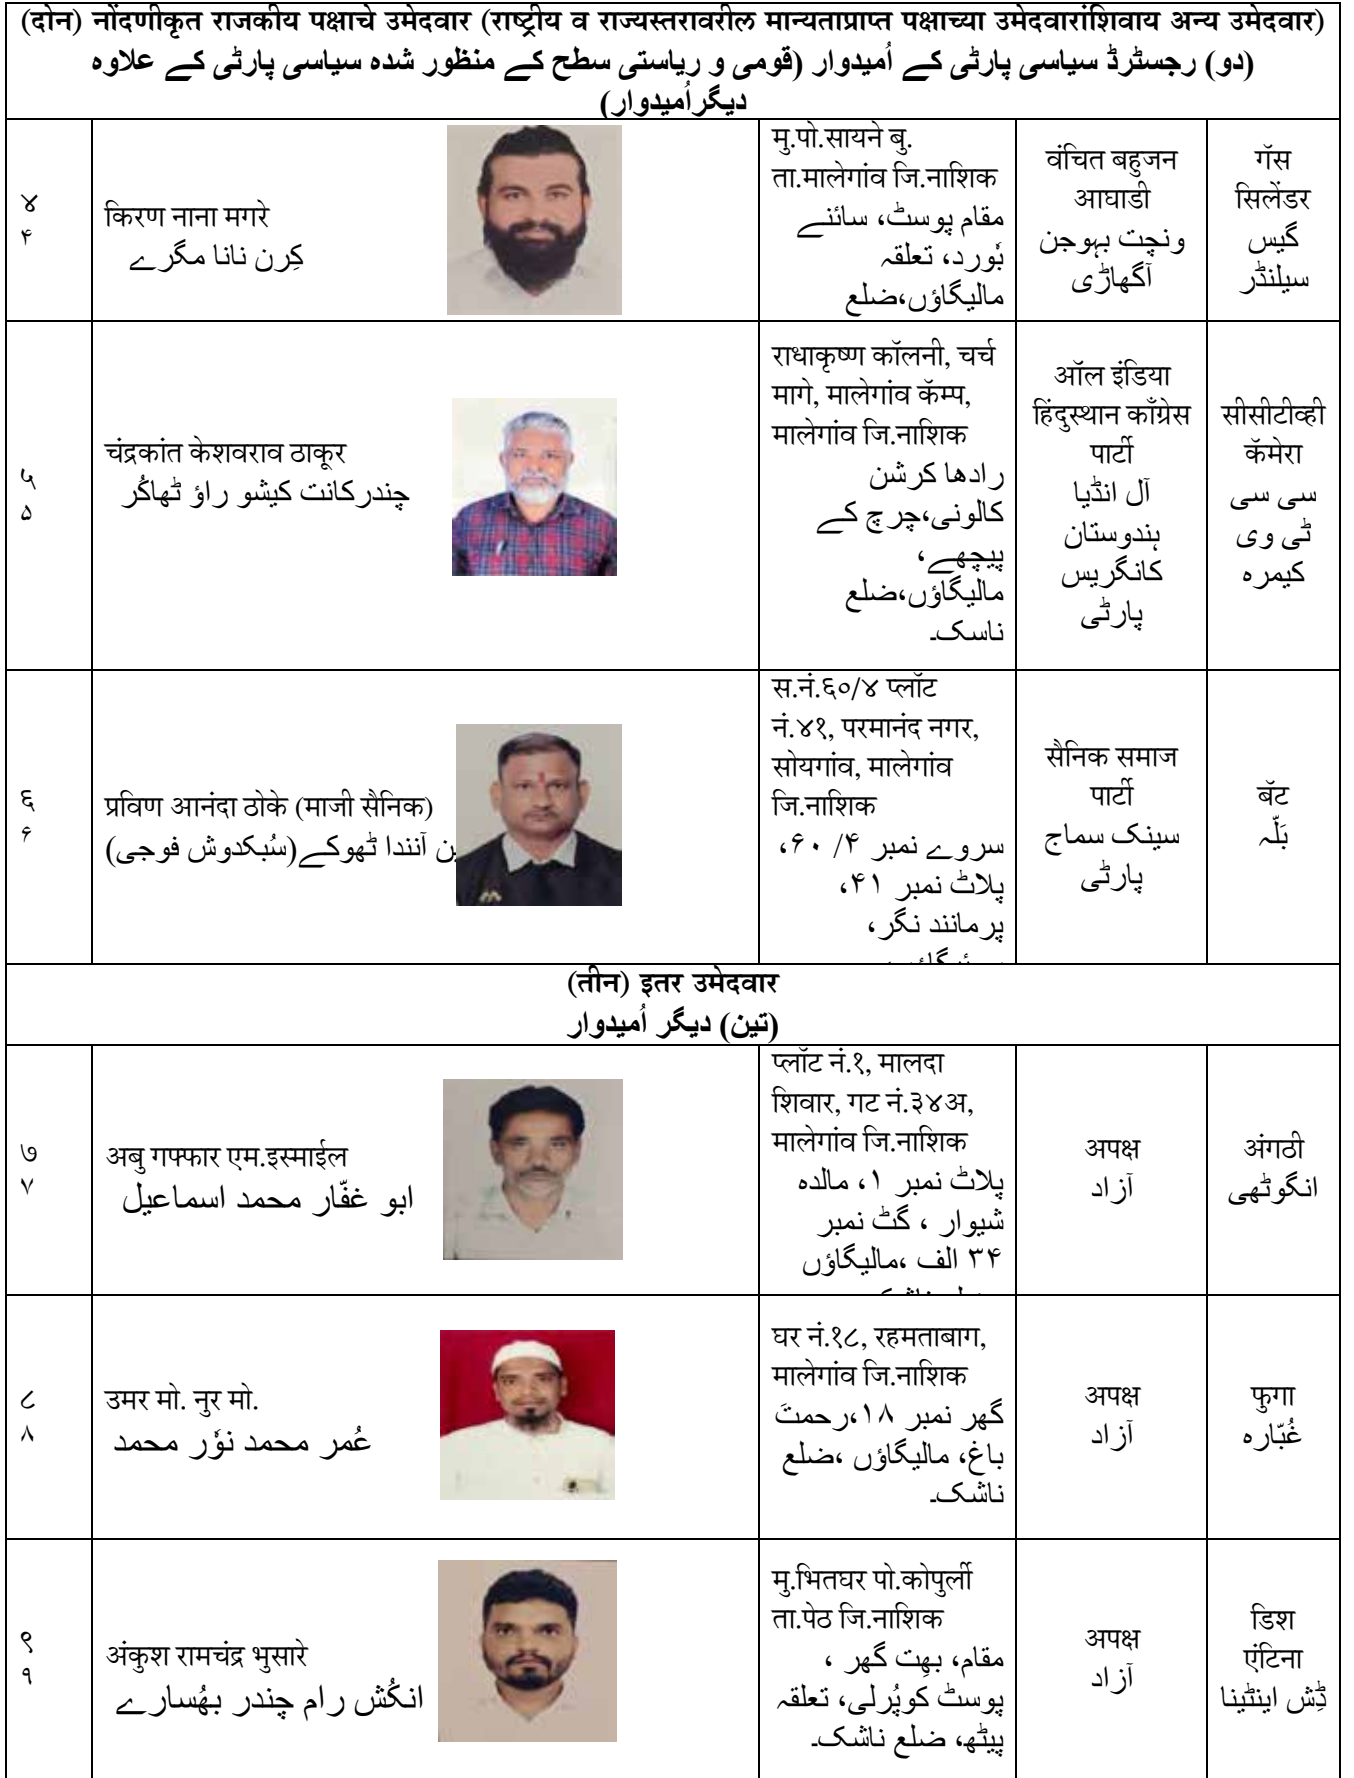 (दोन) नोंदणीकृत राजकीय पक्षाचे उमेदवार (राष्ट्रीय व राज्यस्तरावरील मान्यताप्राप्त पक्षाच्या उमेदवारांशिवाय अन्य उमेदवार)
(دو) رجسٹرڈ سیاسی پارٹی کے اُمیدوار (قومی و ریاستی سطح کے منظور شدہ سیاسی پارٹی کے علاوہ
دیگراُمیدوار)
४
۴
किरण नाना मगरे
کِرن نانا مگرے
मु.पो.सायने बु.
ता.मालेगांव जि.नाशिक
مقام پوسٹ، سائنے
بُورد، تعلقہ
مالیگاؤں،ضلع
वंचित बहुजन
आघाडी
ونچت بہوجن
آگھاڑی
गॅस
सिलेंडर
گیس
سیلنڈر
५
۵
चंद्रकांत केशवराव ठाकूर
چندرکانت کیشو راؤ ٹھاکُر
राधाकृष्ण कॉलनी, चर्च
मागे, मालेगांव कॅम्प,
मालेगांव जि.नाशिक
رادھا کرشن
کالونی،چرچ کے
پیچھے،
مالیگاؤں،ضلع
ناسک۔
ऑल इंडिया
हिंदुस्थान काँग्रेस
पार्टी
آل انڈیا
ہندوستان
کانگریس
پارٹی
सीसीटीव्ही
कॅमेरा
سی سی
ٹی وی
کیمرہ
६
۶
प्रविण आनंदा ठोके (माजी सैनिक)
ین آنندا ٹھوکے(سُبکدوش فوجی)
स.नं.६०/४ प्लॉट
नं.४१, परमानंद नगर,
सोयगांव, मालेगांव
जि.नाशिक
سروے نمبر ۴/ ۶۰،
پلاٹ نمبر ۴۱،
پرمانند نگر،
सैनिक समाज
पार्टी
سینک سماج
پارٹی
बॅट
بَلّہ
(तीन) इतर उमेदवार
(تین) دیگر اُمیدوار
७
۷
अबु गफ्फार एम.इस्माईल
ابو غفّار محمد اسماعیل
प्लॉट नं.१, मालदा
शिवार, गट नं.३४अ,
मालेगांव जि.नाशिक
پلاٹ نمبر ۱، مالدہ
شیوار ، گٹ نمبر
۳۴ الف ،مالیگاؤں
अपक्ष
آزاد
अंगठी
انگوٹھی
८
۸
उमर मो. नुर मो.
عُمر محمد نوٗر محمد
घर नं.१८, रहमताबाग,
मालेगांव जि.नाशिक
گھر نمبر ۱۸،رحمتَ
باغ، مالیگاؤں ،ضلع
ناشک۔
अपक्ष
آزاد
फुगा
غُبّارہ
९
۹
अंकुश रामचंद्र भुसारे
انکُش رام چندر بھُسارے
मु.भितघर पो.कोपुर्ली
ता.पेठ जि.नाशिक
مقام، بھِت گھر ،
پوسٹ کوپُرلی، تعلقہ
پیٹھ، ضلع ناشک۔
अपक्ष
آزاد
डिश
एंटिना
ڈِش اینٹینا